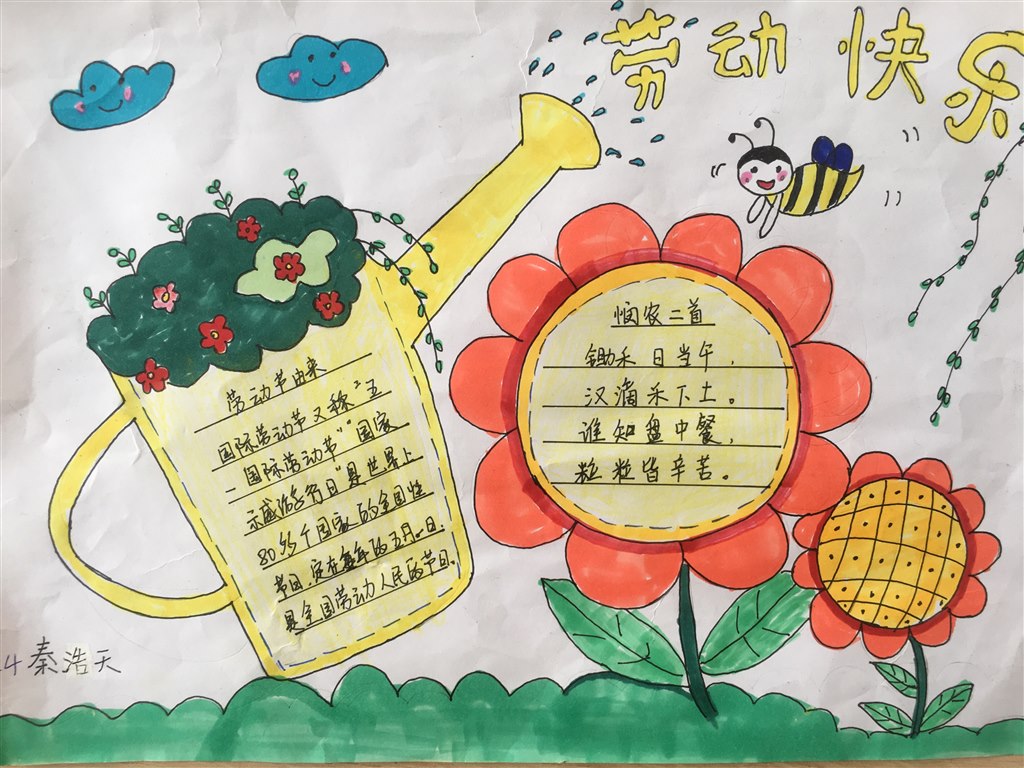 劳动快乐
劳动节由来
国际劳动节又称"五
一国际劳动节""国家
示威游行日"是世界上
80多个国家的全国性
节日.定在每年的五月一日.
是全国劳动人民的节日.
悯农二首
锄禾日当午，
汉滴禾下土。
谁知盘中餐，
粒粒皆辛苦。
4秦浩天